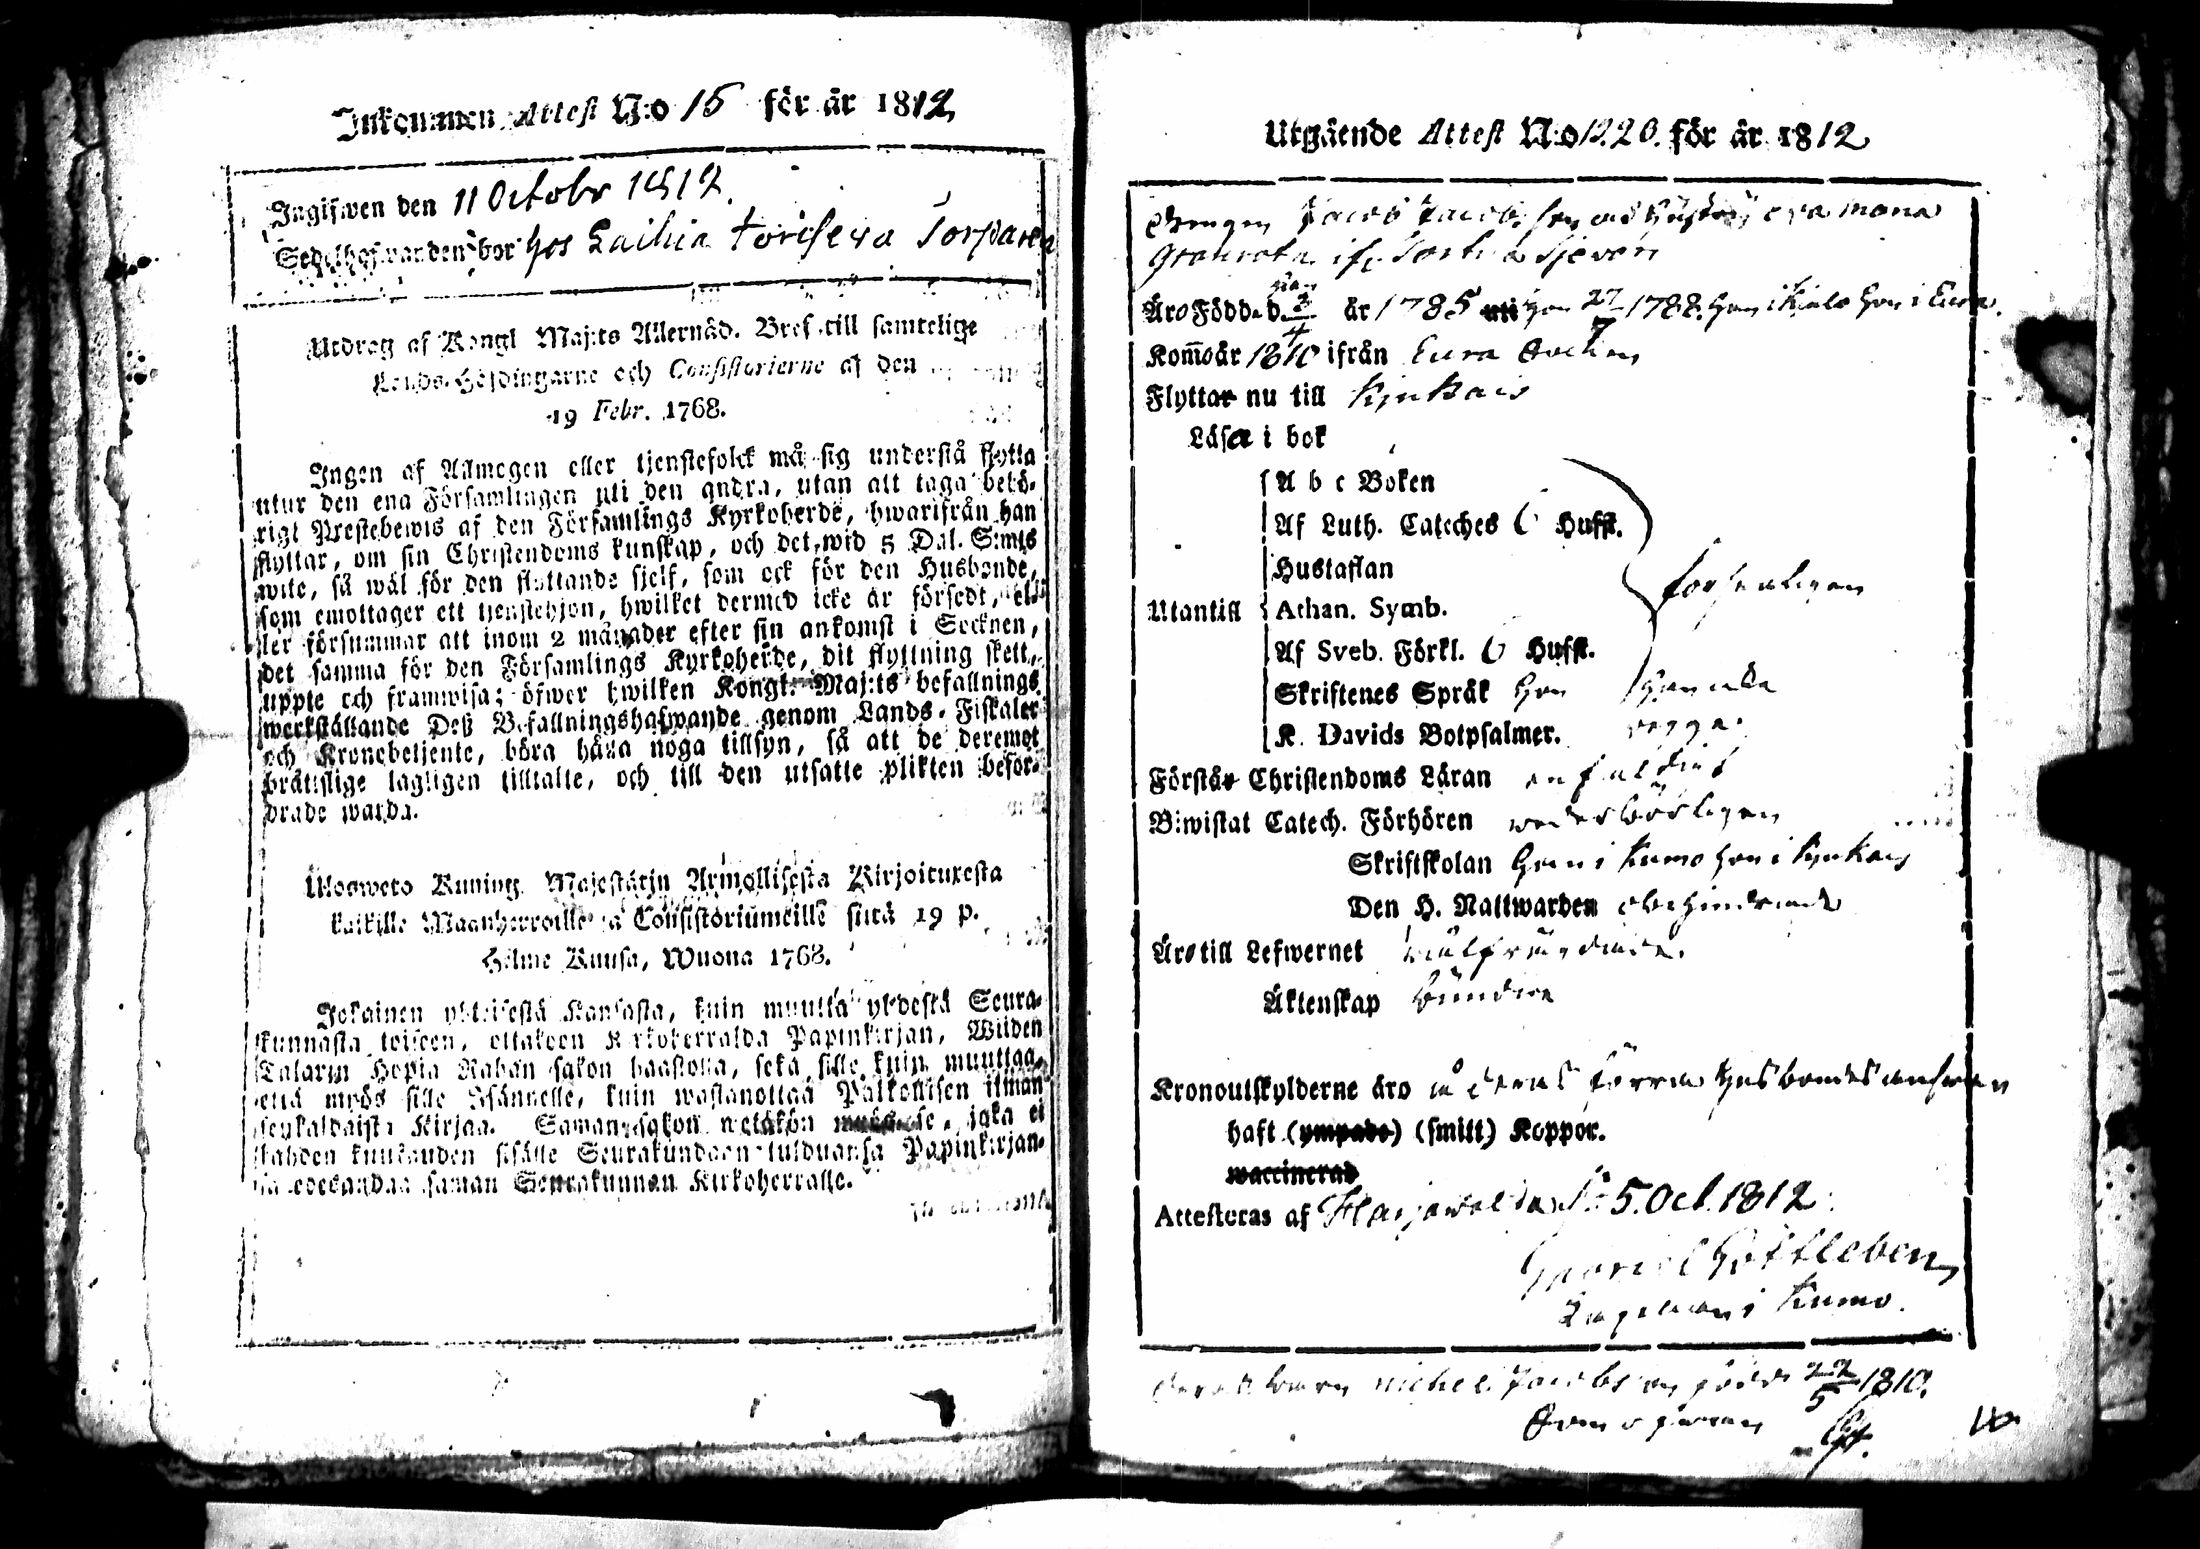 Inkommen Attest N:o 15 för år 1812
Ingifwen den 11 Octobr 1812.
Sedelhafwanden bor hos Laihia Torpparen
Utdrag af Kongl Maj:ts Allernåd. Bref till samtelige
Lands-Höfdingarne och Consistorierne af den
19 Febr. 1768.
Ingen af Allmogen eller tjenstefolck må sig understå flytta
utur den ena Församlingen uti den andra, utan att taga behö-
rigt Prestebewis af den Församlings Kyrkoherde, hwarifrån han
flyttar, om sin Christendoms kunskap, och det wid 5 Dal. S:mts
wite, så wäl för den flyttande sjelf, som ock för den Husbonde,
som emottager ett tjenstehjon, hwilket dermed icke är försedt, el-
ler försummar att inom 2 månader efter sin ankomst i Socknen,
det samma för den Församlings Kyrkoherde, dit flyttning skett,
uppte och framwisa; öfwer hwilken Kongl. Maj:ts befallnings
werkställande Deß Befallningshafwande genom Lands-Fiskaler
och Kronobetjente, böra hafwa noga tillsyn, så att de deremot
brättslige lagligen tilltalte, och till den utsatte plikten befor-
drade warda.
Ulosweto Kuning. Majestätin Armollisesta Kirjoituxesta
kaikille Maanherroille ja Consistoriumeille siitä 19 p.
Helme Kuusa, Wuona 1768.
Jokainen yhteisestä Kansasta, kuin muutta yhdestä Seura-
kunnasta toiseen, ottakoon Kirkoherralda Papinkirjan, Wiiden
Talarin Hopia Rahan sakon haastolla, sekä sille kuin muuttaa,
että myös sille Isännelle, kuin wastanottaa Palkollisen ilman
senkaldaista Kirjaa. Saman sakon wetäkön myös se, joka ei
kahden kuukauden sisälle Seurakundaan tulduansa Papinkirjan-
sa edesandaa saman Seurakunnan Kirkoherralle.
Utgående Attest N:o 1220. för år 1812
Drengen Jacob Jacobsson och hustru
Äro Födde d. 2/4 år 1785 uti hon 27/7 1788. han i Kiulo hon i Eura.
Kom̅o år 1810 ifrån Eura Sockn
Flyttar nu till Kjukais
Läsa i bok
A b c Boken
Af Luth. Cateches 6 Hufst.
Hustaflan
Utantill Athan. Symb. försvarligen
Af Sveb. Förkl. 6 Hufst.
Skriftenes Språk
K. Davids Botpsalmer.
Förstår Christendoms Läran enfaldigt
Biwistat Catech. Förhören wederbörligen
Skriftskolan han i Kumo hon i Kjukais
Den H. Nattwarden obehindrade
Äro till Lefwernet wälfrägdade.
Äktenskap bundne
Kronoutskylderne äro å deras förra Husbondes answar
haft (ympade) (smitt) Koppor.
waccinerad
Attesteras af Harjawalda d. 5. Oct. 1812
Gabriel Gottleben
Capellan i Kumo.
deras barn Michel Jacobsson född 22/5 1810.